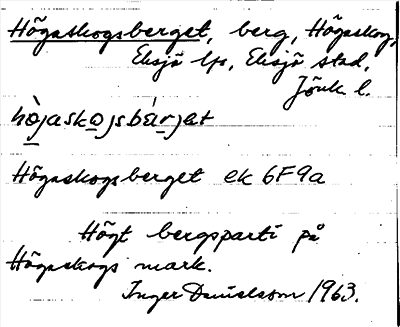 Högaskogsberget, berg, Högaskog,
Eksjö lfs, Eksjö stad,
Jönk. l.
hö̀jaskọjsbár̲jet
Högaskogsberget ek 6F9a
Högt bergsparti på
Högaskogs mark.
Inger Danielsson 1963.